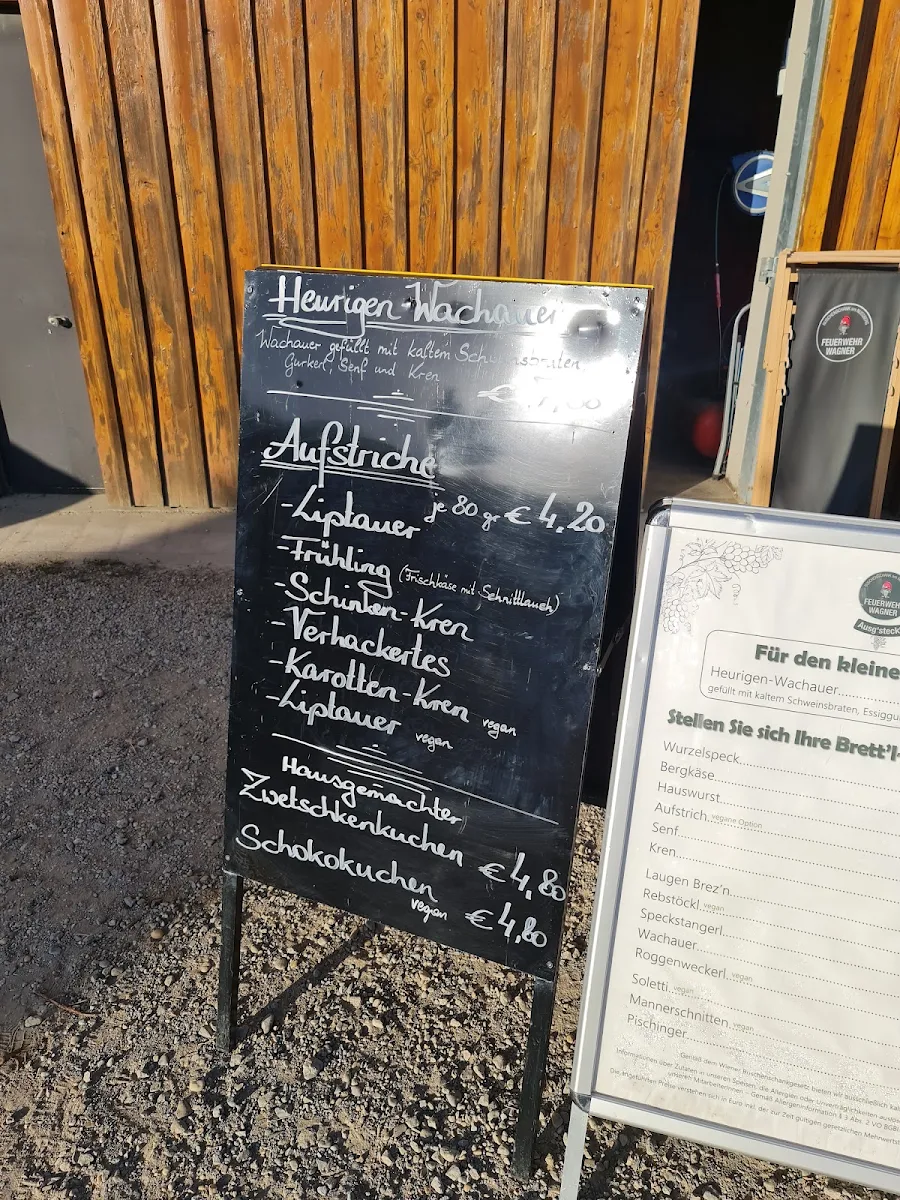 Heurigen-Wachauer
Wachauer gefüllt mit kaltem Schweinsbraten,
Gurkerl, Senf und Kren
Aufstriche
je 80 gr € 4,20
-Liptauer
-Frühling (Frischkäse mit Schnittlauch)
-Schinken-Kren
-Verhackertes
-Karotten-Kren vegan
-Liptauer vegan
Hausgemachter
Zwetschkenkuchen € 4,80
Schokokuchen
vegan € 4,80
FEUERWEHR
WAGNER
FEUERWEHR
WAGNER
Ausg'steckt
Für den kleine
Heurigen-Wachauer
gefüllt mit kaltem Schweinsbraten, Essiggu
Stellen Sie sich Ihre Brett'l-
Wurzelspeck
Bergkäse
Hauswurst
Aufstrich vegane Option
Senf
Kren
Laugen Brez'n
Rebstöckl vegan
Speckstangerl
Wachauer
Roggenweckerl vegan
Soletti vegan
Mannerschnitten vegan
Pischinger